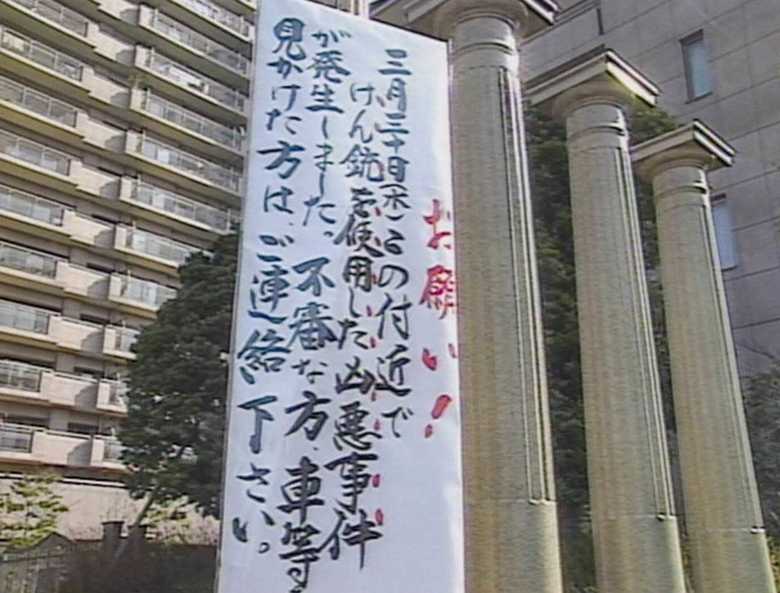 お願い!
三月三十日(木)この付近で
けん銃を使用した凶悪事件
が発生しました。不審な方、車等を
見かけた方は、ご連絡下さい。